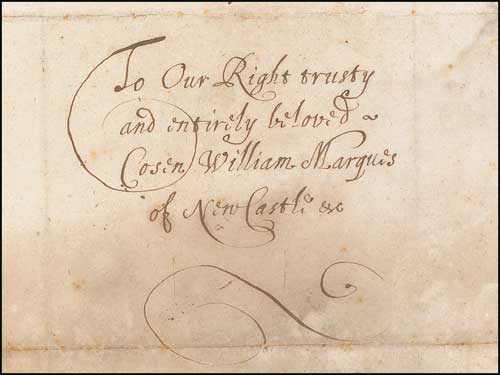 To Our Right trusty
and entirely beloved ~
Cosen William Marques
of NewCastle &c